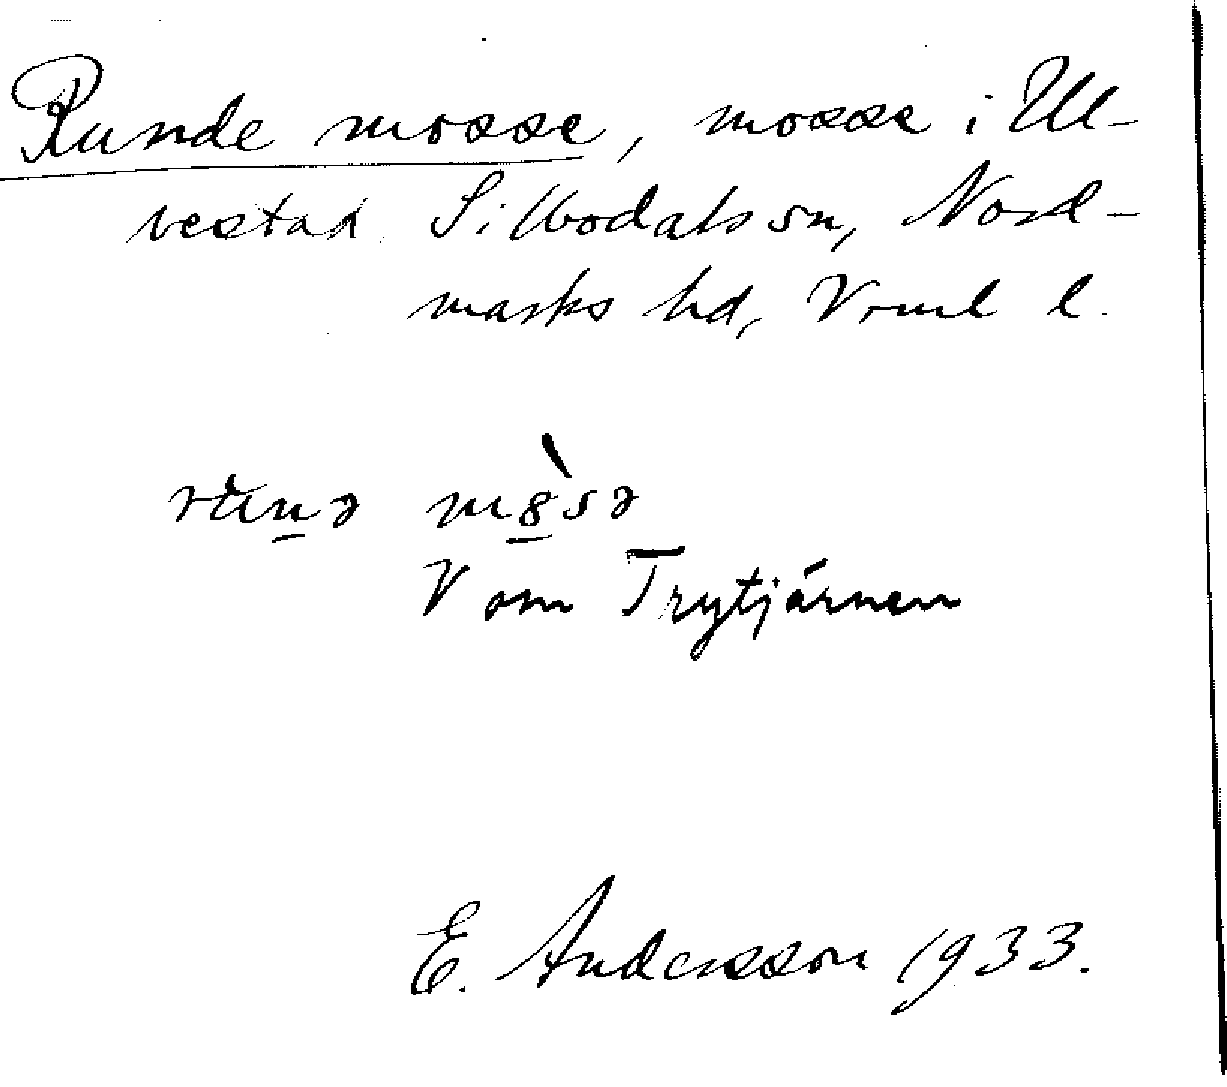 Runde mosse, mosse i Ul-
vestad Silbodals sn, Nord-
marks hd, Vrml l.
mò̱sə
V om Trytjärnen
E. Andersson 1933.